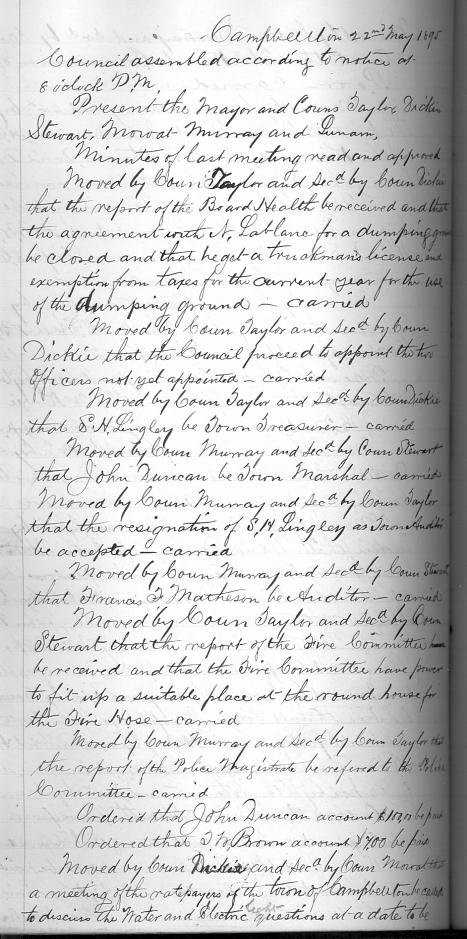 Campbellton 22nd May 1895
Council assembled according to notice at
8 o'clock P.M.
Present the Mayor and Couns Taylor Dickie
Stewart, Mowat Murray and Lunam,
Minutes of last meeting read and approved
Moved by Coun Taylor and Secd by Coun Dickie
that the report of the Board Health be received and that
the agreement with N. Lablanc for a dumping ground
be closed and that he get a truckman's license and
exemption from taxes for the current year for the use
of the dumping ground - carried
Moved by Coun Taylor and Secd by Coun
Dickie that the Council proceed to appoint the two
Officers not yet appointed - carried
Moved by Coun Taylor and Secd by Coun Dickie
that S.H. Lingley be Town Treasurer - carried
Moved by Coun Murray and Secd by Coun Stewart
that John Duncan be Town Marshal - carried
Moved by Coun Murray and Secd by Coun Taylor
that the resignation of S.H. Lingley as Town Auditor
be accepted - carried
Moved by Coun Murray and Secd by Coun Stewart
that Francis F Matheson be Auditor - carried
Moved by Coun Taylor and Secd by Coun
Stewart that the report of the Fire Committee
be received and that the Fire Committee have power
to fit up a suitable place at the round house for
the Fire Hose - carried
Moved by Coun Murray and Secd by Coun Taylor that
the report of the Police Magistrate be refered to the Police
Committee - carried
Ordered that John Duncan account be paid
Ordered that T W Brown account $7.00 be paid
Moved by Coun Dickie and Secd by Coun Mowat that
a meeting of the ratepayers of the town of Campbellton be called
to discuss the Water and Electric light questions at a date to be